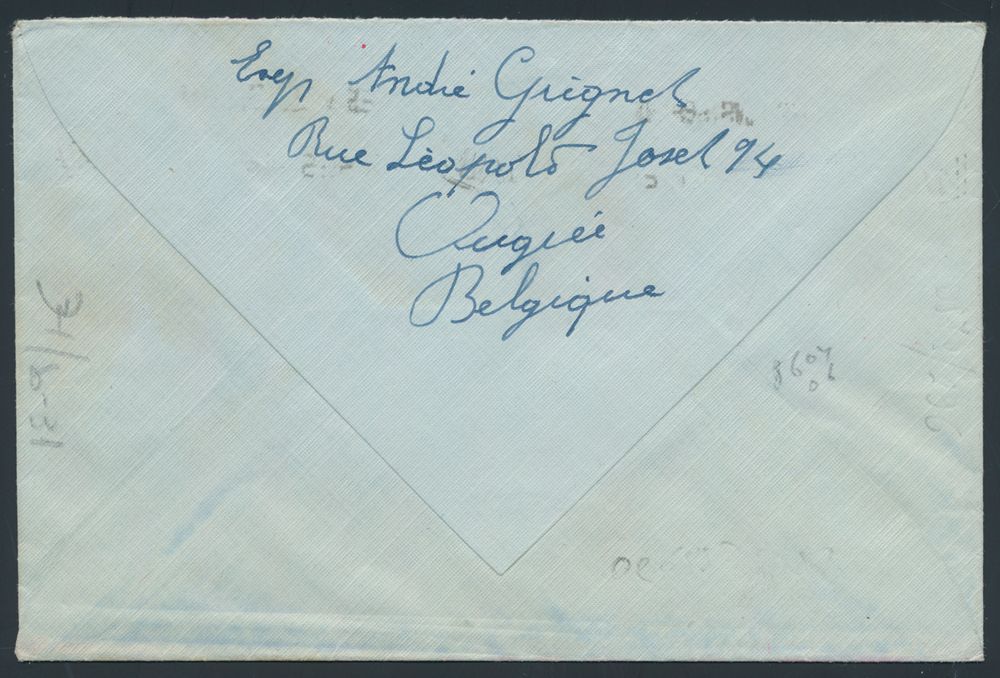 Exp André Grignet
Rue Léopold Josel 94
Ougrée
Belgique